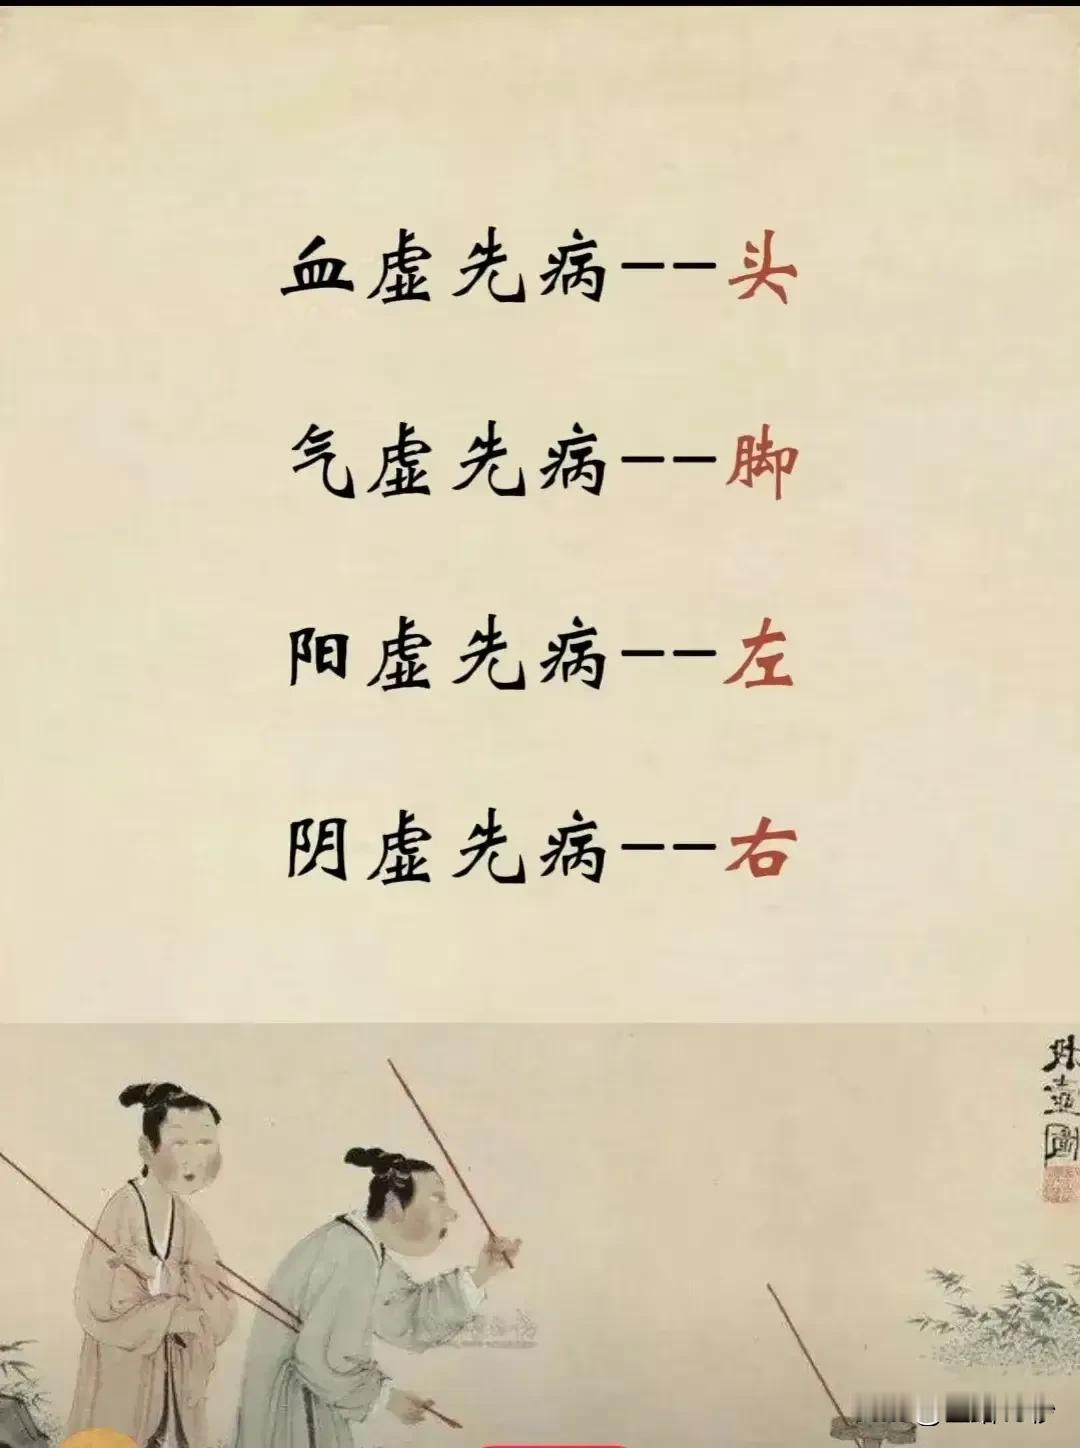 血虚先病--头
气虚先病--脚
阳虚先病--左
阴虚先病--右
投壶图